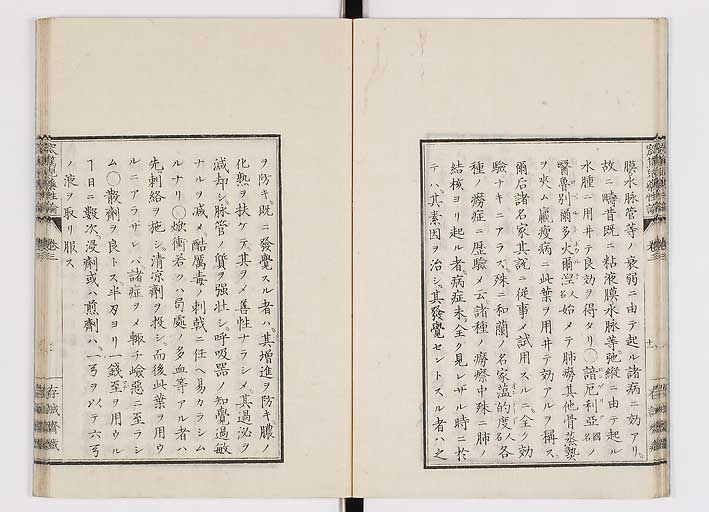 膜水脉管等ノ衰弱ニ由テ起ル諸病ニ効アリ。
故ニ疇昔既ニ粘液膜水脉等弛縦ニ由テ起ル
水腫ニ用井テ良効ヲ得タリ〇諳厄利亜國名ノ
醫魯別爾多火爾涅人名始メテ肺癆其他骨蒸熱
ヲ夾ム羸痩病ニ此葉ヲ用井テ効アルヲ稱ス
爾后諸名家其説ニ從事メ試用スルニ全ク効
驗ナキニアラズ殊ニ和蘭ノ名家 的度人名各
種ノ癆症ニ歴驗メ云諸種ノ癆瘵中殊ニ肺ノ
結核ヨリ起ル者。病症未全ク見レザル時ニ於
テハ、其素因ヲ治シ、其發覺セントスル者ハ之
ヲ防キ、既ニ發覺スル者ハ、其増進ヲ防キ膿ノ
化熟ヲ扶ケテ、其ヲメ善性ナラシメ、其過泌ヲ
減却シ、脉管ノ質ヲ強壮シ、呼吸器ノ知覺過敏
ナルヲ減メ酷厲毒ノ刺戟ニ任ヘ易カラシム
ルナリ〇焮衝若クハ局處ノ多血等アル者ハ
先刺絡ヲ施シ清凉劑ヲ投シ、而後此葉ヲ用ウ
ルニアラザレバ諸症ヲメ輙チ嶮惡ニ至ラシ
ム〇散劑ヲ良トス半刄ヨリ一錢至ヲ用ウル
ヿ日ニ數次、浸劑或ハ煎劑ハ、一ヲ テ六
ノ液ヲ取リ服ス
卷三
存誠齋藏